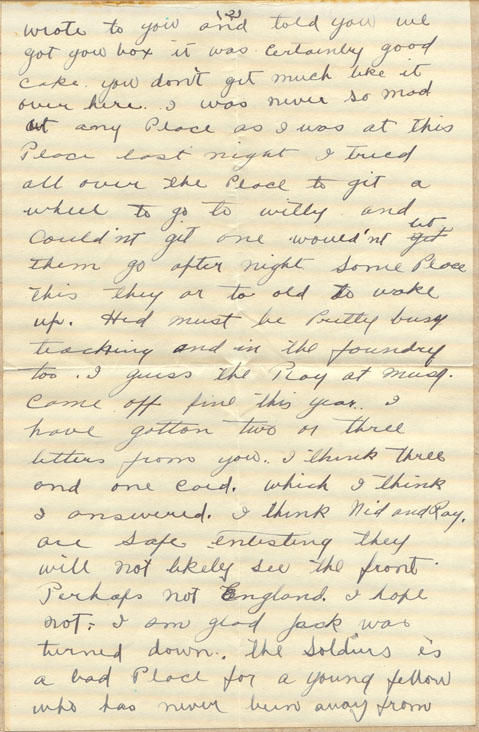 (2)
wrote to you and told you we
got you box it was certainly good
cake. you don't get much like it
over here. I was never so mad
at any Place as I was at this
Place last night I tried
all over the Place to git a
wheel to go to willy and
Could'nt git one would'nt let
them go after night Some Place
this they ar to old to wake
up. Hed must be Pretty busy
teaching and in the foundry
too. I guess the Play at Musq.
Came off fine this year. I
have gotton two or three
letters from you. I think three
and one card. which I think
I answered. I think Nid and Ray.
are Safe enlisting they
will not likely see the front
Perhaps not England. I hope
not: I am glad Jack was
turned down. the Soldiers is
a bad Place for a young fellow
who has never been away from